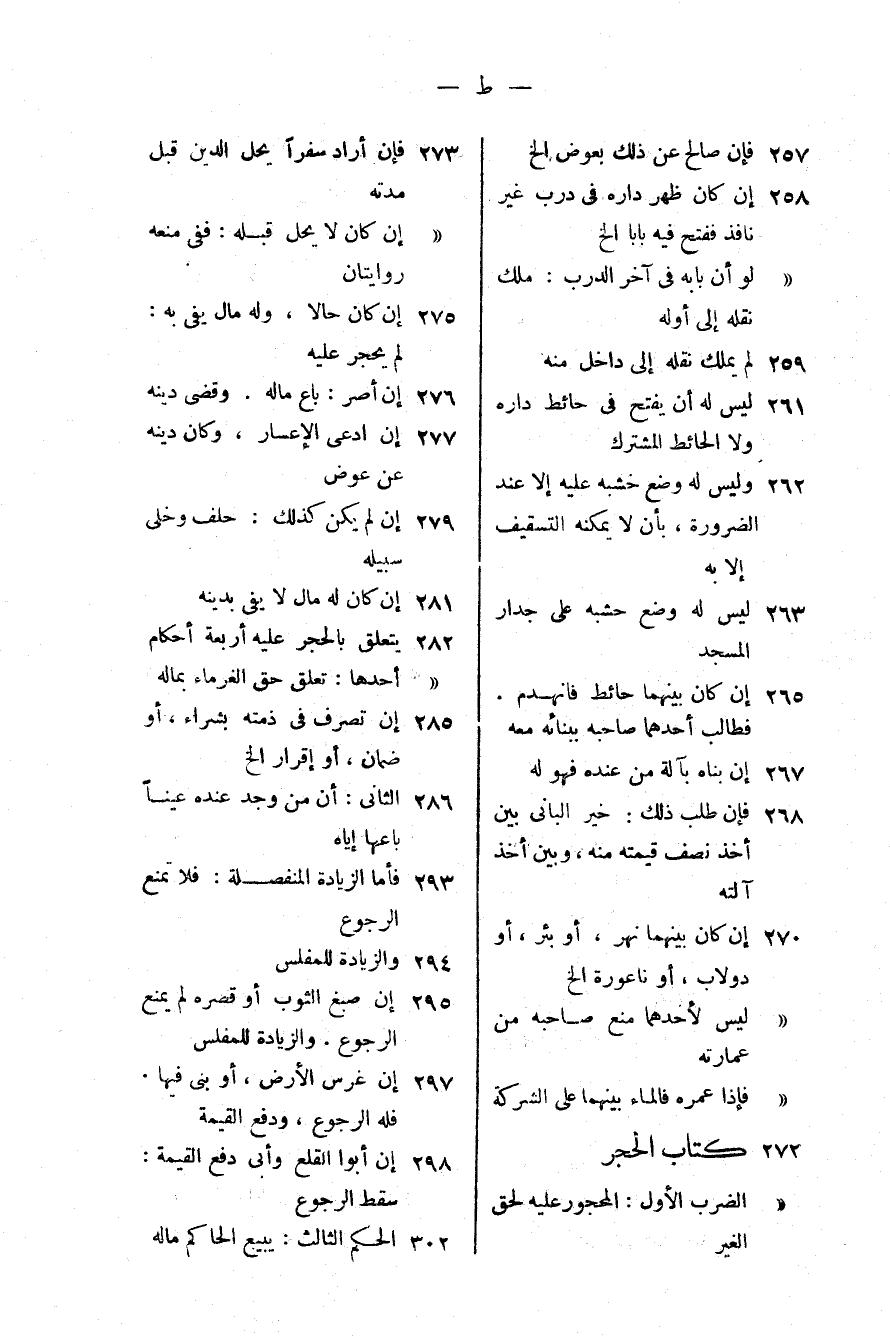 — ط —
٢٥٧ فإن صالح عن ذلك بعوض الخ
٢٥٨ إن كان ظهر داره فى درب غير
نافذ ففتح فيه بابا الخ
« لو أن بابه فى آخر الدرب : ملك
نقله إلى أوله
٢٥٩ لم يملك نقله إلى داخل منه
٢٦١ ليس له أن يفتح فى حائط داره
ولا الحائط المشترك
٢٦٢ وليس له وضع خشبه عليه إلا عند
الضرورة ، بأن لا يمكنه التسقيف
إلا به
٢٦٣ ليس له وضع حشبه على جدار
المسجد
٢٦٥ إن كان بينهما حائط فانهـدم .
فطالب أحدهما صاحبه ببنائه معه
٢٦٧ إن بناه بآلة من عنده فهو له
٢٦٨ فإن طلب ذلك : خير البانى بين
أخذ نصف قيمته منه ، وبين أخذ
آلته
٢٧٠ إن كان بينهما نهر ، أو بئر ، أو
دولاب ، أو ناعورة الخ
« ليس لأحدهما منع صـاحبه من
عمارته
« فإذا عمره فالماء بينهما على الشركة
٢٧٢ كتاب الحجر
« الضرب الأول : المحجور عليه لحق
الغير
٢٧٣ فإن أراد سفراً يحل الدين قبل
مدته
« إن كان لا يحل قبـله : ففى منعه
روايتان
٢٧٥ إن كان حالا ، وله مال يفى به :
لم يحجر عليه
٢٧٦ إن أصر : باع ماله . وقضى دينه
٢٧٧ إن ادعى الإعسار ، وكان دينه
عن عوض
٢٧٩ إن لم يكن كذلك : حلف وخلى
سبيله
٢٨١ إن كان له مال لا يفى بدينه
٢٨٢ يتعلق بالحجر عليه أربعة أحكام
« أحدها : تعلق حق الغرماء بماله
٢٨٥ إن تصرف فى ذمته بشراء ، أو
ضمان ، أو إقرار الخ
٢٨٦ الثانى : أن من وجد عنده عينـاً
باعها إياه
٢٩٣ فأما الزيادة المنفصـــلة : فلا تمنع
الرجوع
٢٩٤ والزيادة للمفلس
٢٩٥ إن صبغ الثوب أو قصره لم يمنع
الرجوع . والزيادة للمفلس
٢٩٧ إن غرس الأرض ، أو بنى فيها .
فله الرجوع ، ودفع القيمة
٢٩٨ إن أبوا القلع وأبى دفع القيمة :
سقط الرجوع
٣٠٢ الحكم الثالث : يبيع الحاكم ماله